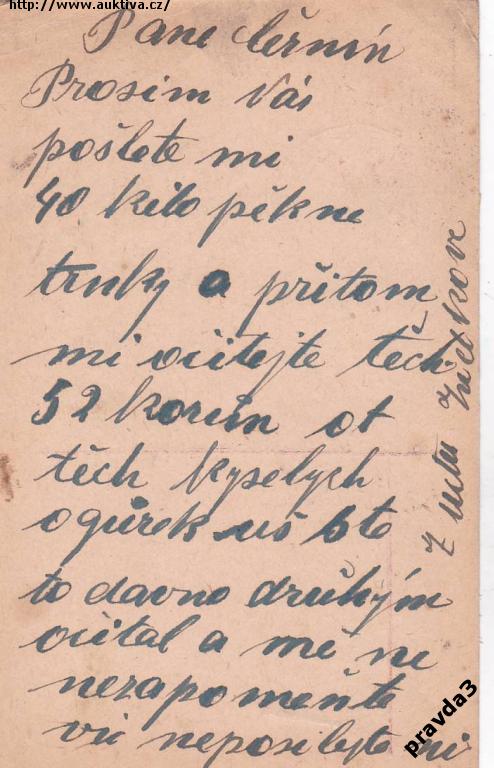 http://www.auktiva.cz/
Pane černín
Prosim Vás
pošlete mi
40 kilo pěkne
trnky a přitom
mi očitejte těch
52 korun ot
těch kyselych
ogůrek uš ste
to davno druhým
očital a mě ne
nezapomeňte
vic neposilejte mi
z
pravda3